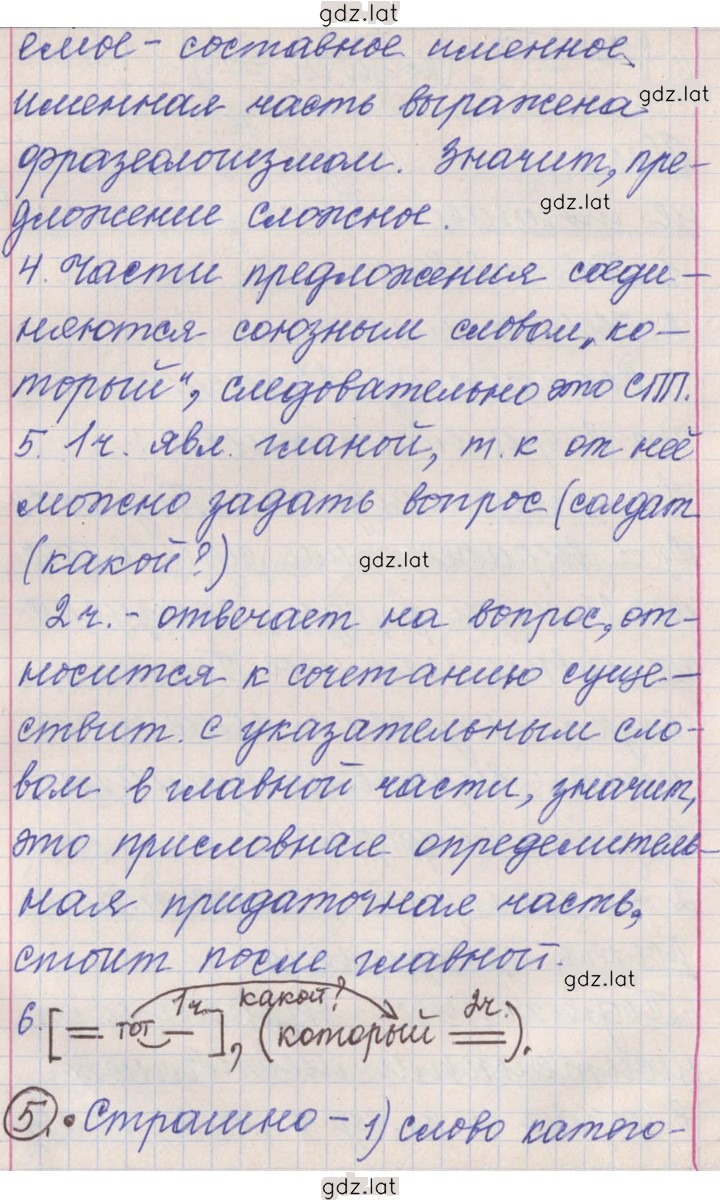 gdz.lat
емое - составное именное,
именная часть выражена
gdz.lat
фразеологизмом. Значит, пре-
gdz.lat
дложение сложное.
4. Части предложения соеди-
няются союзным словом „ко-
торый", следовательно это СПП.
5. 1ч. явл. гланой, т. к от неё
можно задать вопрос (солдат
(какой?)
gdz.lat
2ч. - отвечает на вопрос, от-
носится к сочетанию суще-
ствит. с указательным сло-
вом в главной части, значит,
это присловная определитель-
ная придаточная часть,
стоит после главной.
gdz.lat
1ч. какой? 2ч.
6. [= тот -], (который =).
5. • Страшно - 1) слово катего-
gdz.lat